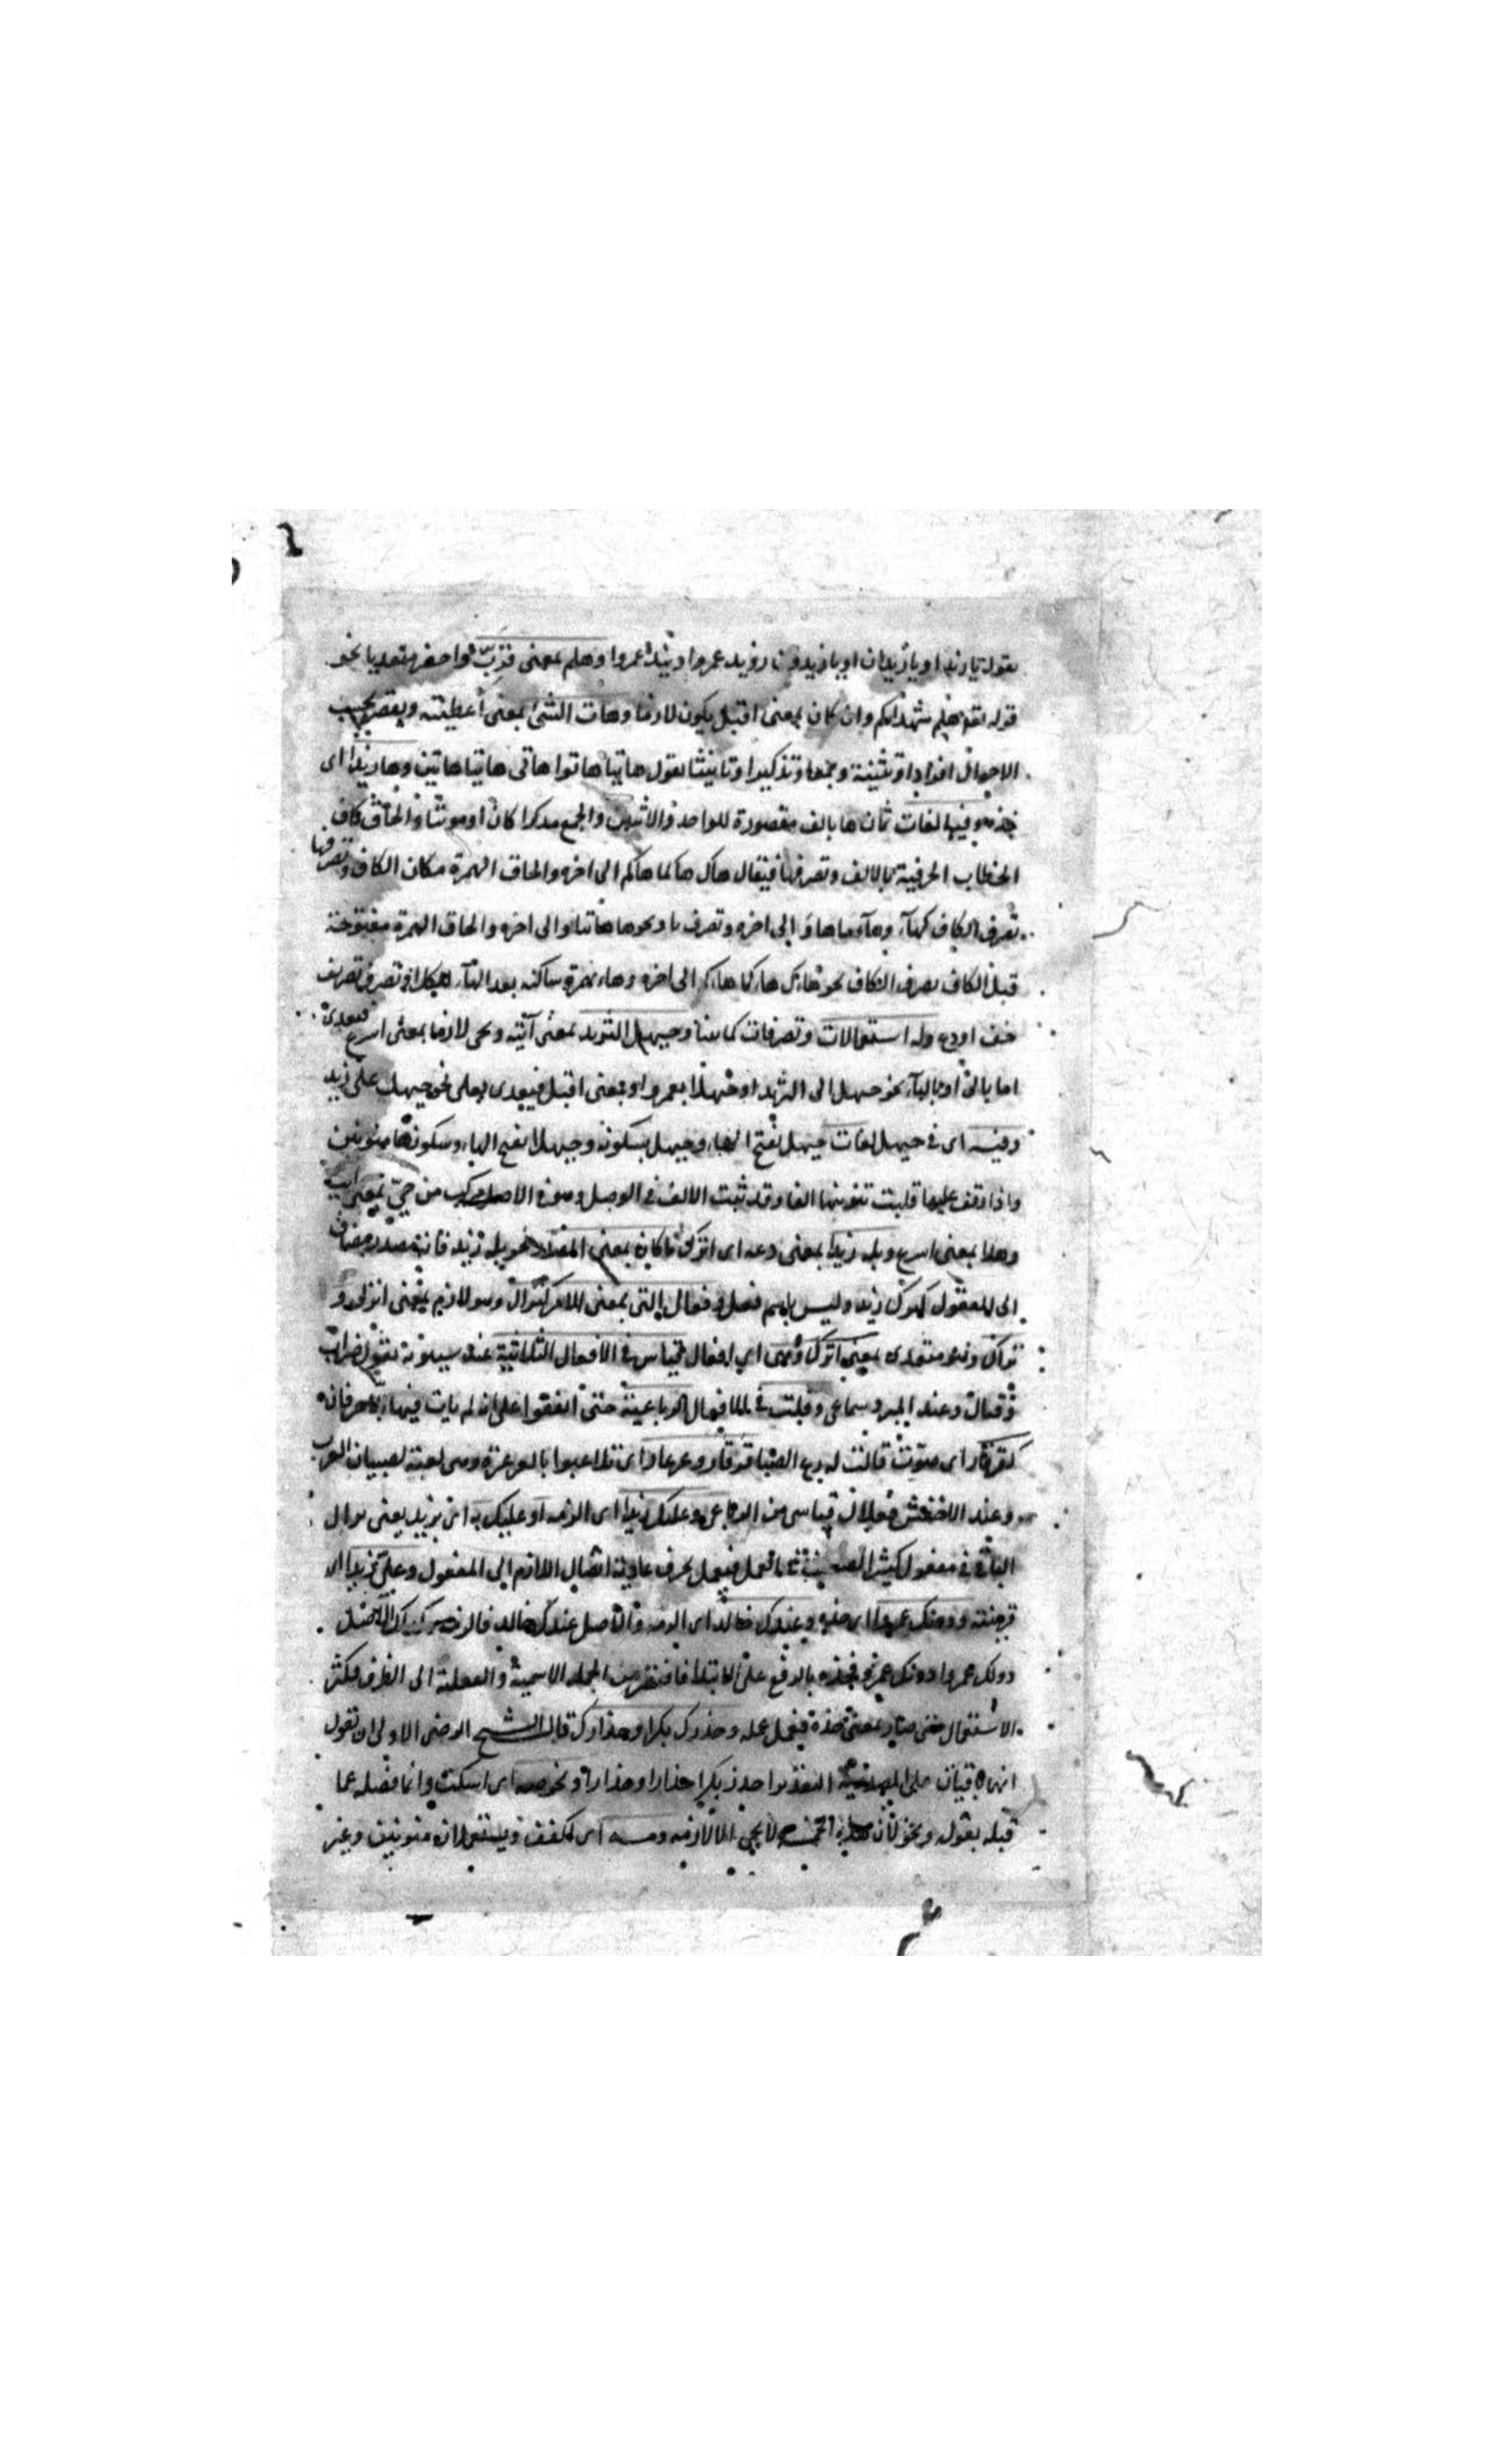 تقول يا زيد او يا زيدان او يا زيدون رويد عمروا وتيد عمروا وهلم بمعنى قرب واحضر متعديا نحو
قوله تعالى هلم شهدائكم وان كان بمعنى اقبل يكون لازما وهات الشئ بمعنى أعطيته ويتصرف بحسب
الاحوال افرادا وتثنية وجمعا وتذكيرا وتانيثا تقول هاتيا هاتوا هاتى هاتيا هاتين وها زيدا اى
خذه وفيها لغات ثمان ها بالف مقصورة للواحد والاثنين والجمع مذكرا كان او مونثا والحاق كاف
الخطاب الحرفية بالالف وتصرفها فيقال هاك هاكما هاكم الى اخره والحاق الهمزة مكان الكاف وتصرفها
تصرف الكاف الى اخره وتصرف الى اخره والحاق الهمزة مفتوحة
قبل الكاف تصرف الكاف نحو هاءك هاءكما هاءكم الى اخره وهاء بهمزة ساكنة بعد الهاء للكل او تصرف تصريف
خف اودع وله استعمالات وتصرفات وحيهل الثريد بمعنى آتيه ويجى لازما بمعنى اسرع فيعدى
اما بالى او بالباء نحو حيهل الى الثريد او حيهلا بعمرو او بمعنى اقبل فيعدى بعلى نحو حيهل على زيد
وفيه اى فى حيهل لغات حيهل بفتح الهاء وحيهل بسكونه وحيهلا بفتح الهاء وسكونها منونين
واذا وقف عليها قلبت تنوينها الفا وقد ثبت الالف فى الوصل وهو فى الاصل مركب من حى بمعنى ايت
وهلا بمعنى اسرع وبله زيدا بمعنى دعه اى اترك ما كان بمعنى المصدر نحو بله زيد فانه مصدر مضاف
الى المفعول كترك زيد وليس باسم فعل وفعال التى بمعنى الامر كنزال وهو لازم بمعنى انزل و
تراك وهو متعدى بمعنى اترك اى فعال قياس فى الافعال الثلاثية عند سيبويه تقول ضراب
وقتال وعند المبرد سماعى وقلت فى الافعال الرباعية حتى اتفقوا على انه لم يات فيها الا حرفان
كقرقار اى صوت قالت له ريح الصبا قرقار وعرعار اى تلاعبوا بالعرعرة وهى لعبة لصبيان العرب
وعند الاخفش فعلال قياسى من الرباعى وعليك زيدا اى الزمه او عليك به اى بزيد يعنى يزاد
الباء فى مفعول كثيرا فى العمل فيعمل بحرف عادته ايصال اللازم الى المفعول وعلى زيدا اى
قربنه ودونك عمروا اى خذه وعندك خالدا اى الزمه والاصل عندك خالد فالزمه كذلك الاصل
دونك عمروا دونك عمرو فخذه بالرفع على الابتداء فاقتصر من الجملة الاسمية والفعلية الى الظرف فكثر
الاستعمال حتى صار بمعنى خذه فيعمل عمله وحذرك بكرا وحذارك قال الشيخ الرضى الاولى ان تقول
انهما باقيان على المصدرية التقدير احذر بكرا حذارا وحذارا ونحو صه اى اسكت وانما فصله عما
قبله بقوله ونحو لان هذه الخمسة لا يجى الا لازمة ومه اى اكفف ويستعملان منونين وغير